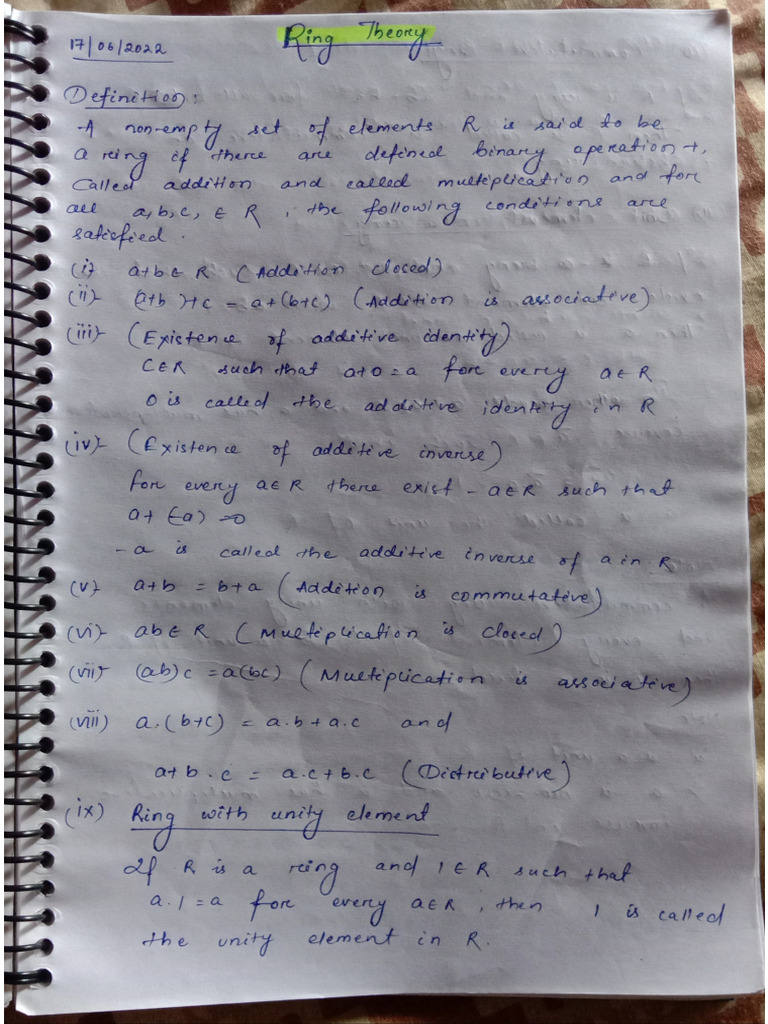 17/06/2022
Ring Theory
Definition:
A non-empty set of elements R is said to be
a ring if there are defined binary operation +,
Called addition and called multiplication and for
all a,b,c, ∈ R, the following conditions are
satisfied.
(i) a+b ∈ R (Addition closed)
(ii) (a+b)+c = a+(b+c) (Addition is associative)
(iii) (Existence of additive identity)
C∈R such that a+0=a for every a∈R
0 is called the additive identity in R
(iv) (Existence of additive inverse)
for every a∈R there exist -a∈R such that
a+(-a)=0
-a is called the additive inverse of a in R
(v) a+b = b+a (Addition is commutative)
(vi) ab∈R (Multiplication is closed)
(vii) (ab)c = a(bc) (Multiplication is associative)
(viii) a.(b+c) = a.b+a.c and
a+b.c = a.c+b.c (Distributive)
(ix) Ring with unity element
If R is a ring and 1∈R such that
a.1=a for every a∈R, then 1 is called
the unity element in R.